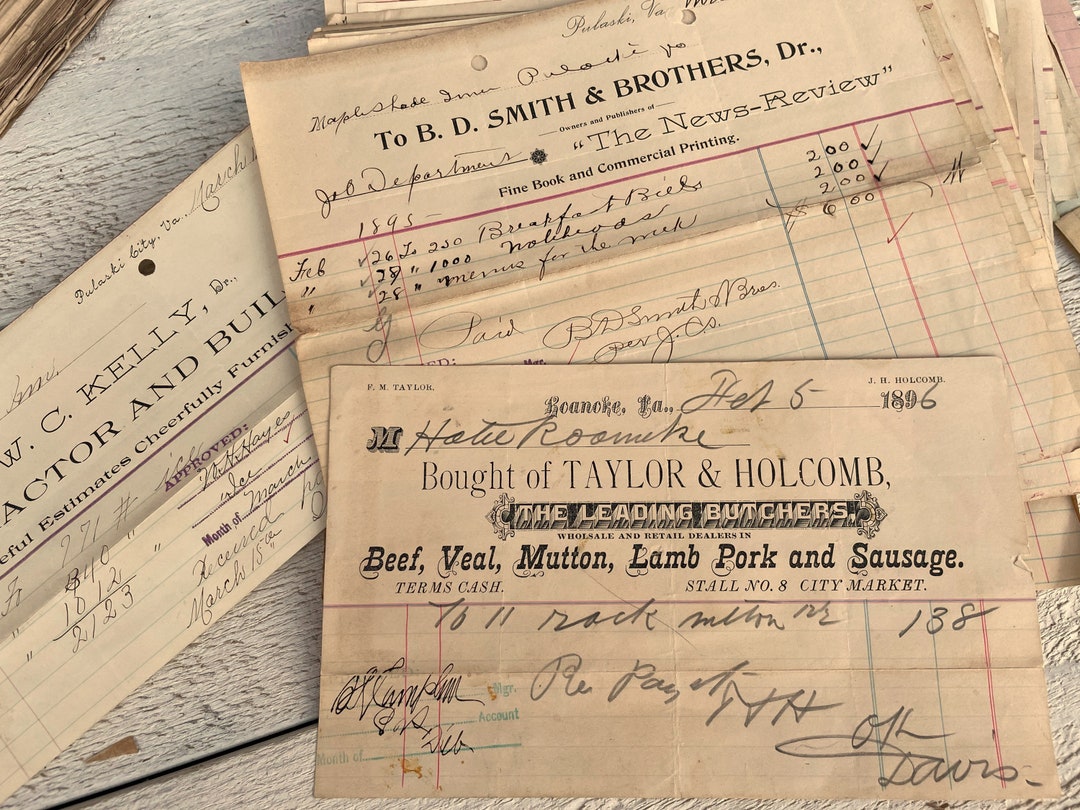 Pulaski, Va.
Mapleshade Inn Pulaski va
To B. D. SMITH & BROTHERS, Dr.,
Owners and Publishers of
Job Department "The News-Review"
Fine Book and Commercial Printing.
1895-
Feb 26 To 250 Breakfast Bills 2 00
" 28 " 1000 Noteheads 2 00
" 28 " menus for the week 2 00
$ 6 00
Paid B D Smith & Bros.
Per J. C. S.
Mgr.
Pulaski City, Va. March
W. C. KELLY, Dr.,
Estimates Cheerfully Furnish
APPROVED:
W. H. Hayes
Month of March
271 #
840
1012
2123
Received
March 15
F. M. TAYLOR. J. H. HOLCOMB.
Roanoke, Va., Feb 5 1896
M Hotel Roanoke
Bought of TAYLOR & HOLCOMB,
THE LEADING BUTCHERS,
WHOLSALE AND RETAIL DEALERS IN
Beef, Veal, Mutton, Lamb Pork and Sausage.
TERMS CASH. STALL NO. 8 CITY MARKET.
To 11 rack mutton 12½ 138
Mgr.
Account
Month of
Rec Payt
OK
Davis